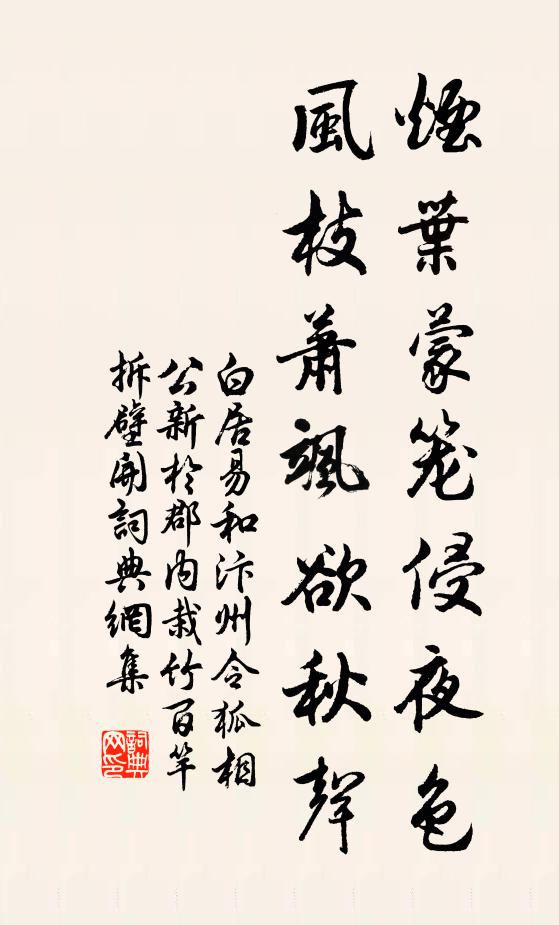 煙葉蒙笼侵夜色
風枝萧颯欲秋聲
白居易和汴州令狐相
公新於郡内栽竹百竿
拆壁開詞典網集
詞典网印